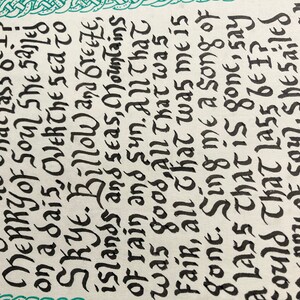 that lass be I?
Merry of soul she sailed
on a dais, Over the sea to
Skye Billow and breeze,
islands and seas, Mountains
of rain and sun, All that
was good, all that was
fair, all that was me is
gone. Sing me a song of
a lass that is gone, say
could that lass be I?
of soul she sailed